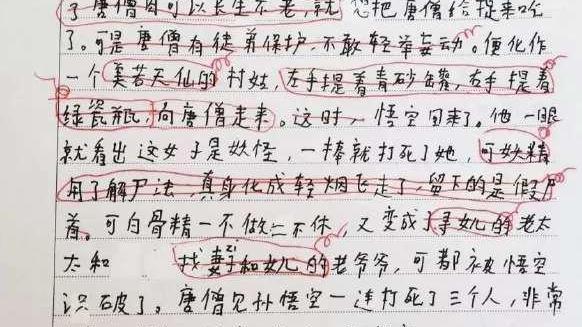 了唐僧肉可以长生不老,就想把唐僧给捉来吃
了。可是唐僧有徒弟保护,不敢轻举妄动。便化作
一个美若天仙的村姑,左手提着青砂罐,右手提着
绿瓷瓶,向唐僧走来。这时,悟空回来了。他一眼
就看出这女子是妖怪,一棒就打死了她,可妖精
用了解尸法,真身化成轻烟飞走了,留下的是假尸
首。可白骨精一不做二不休,又变成了寻女儿的老太
太和 找妻子和女儿的老爷爷,可都被悟空
识破了。唐僧见孙悟空一连打死了三个人,非常